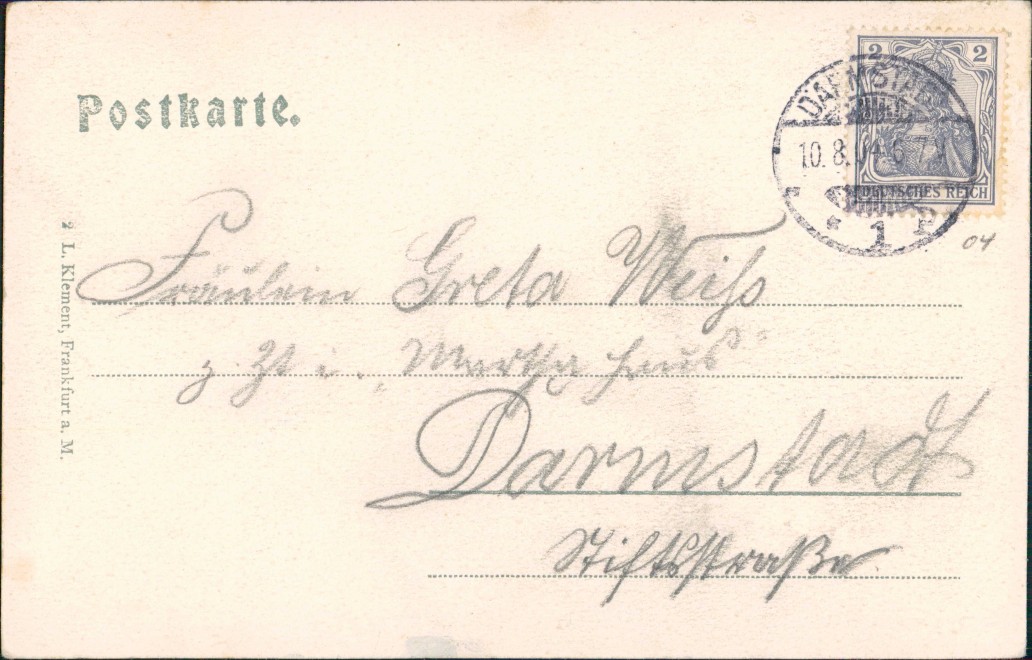 Postkarte.
2 2
DEUTSCHES REICH
DARMSTADT
10. 8. 04. 6-7
* 1 P
04
Fräulein Greta Weiß
z. Zt i. „Martha Haus"
Darmstadt
Stiftsstraße.
2 L. Klement, Frankfurt a. M.